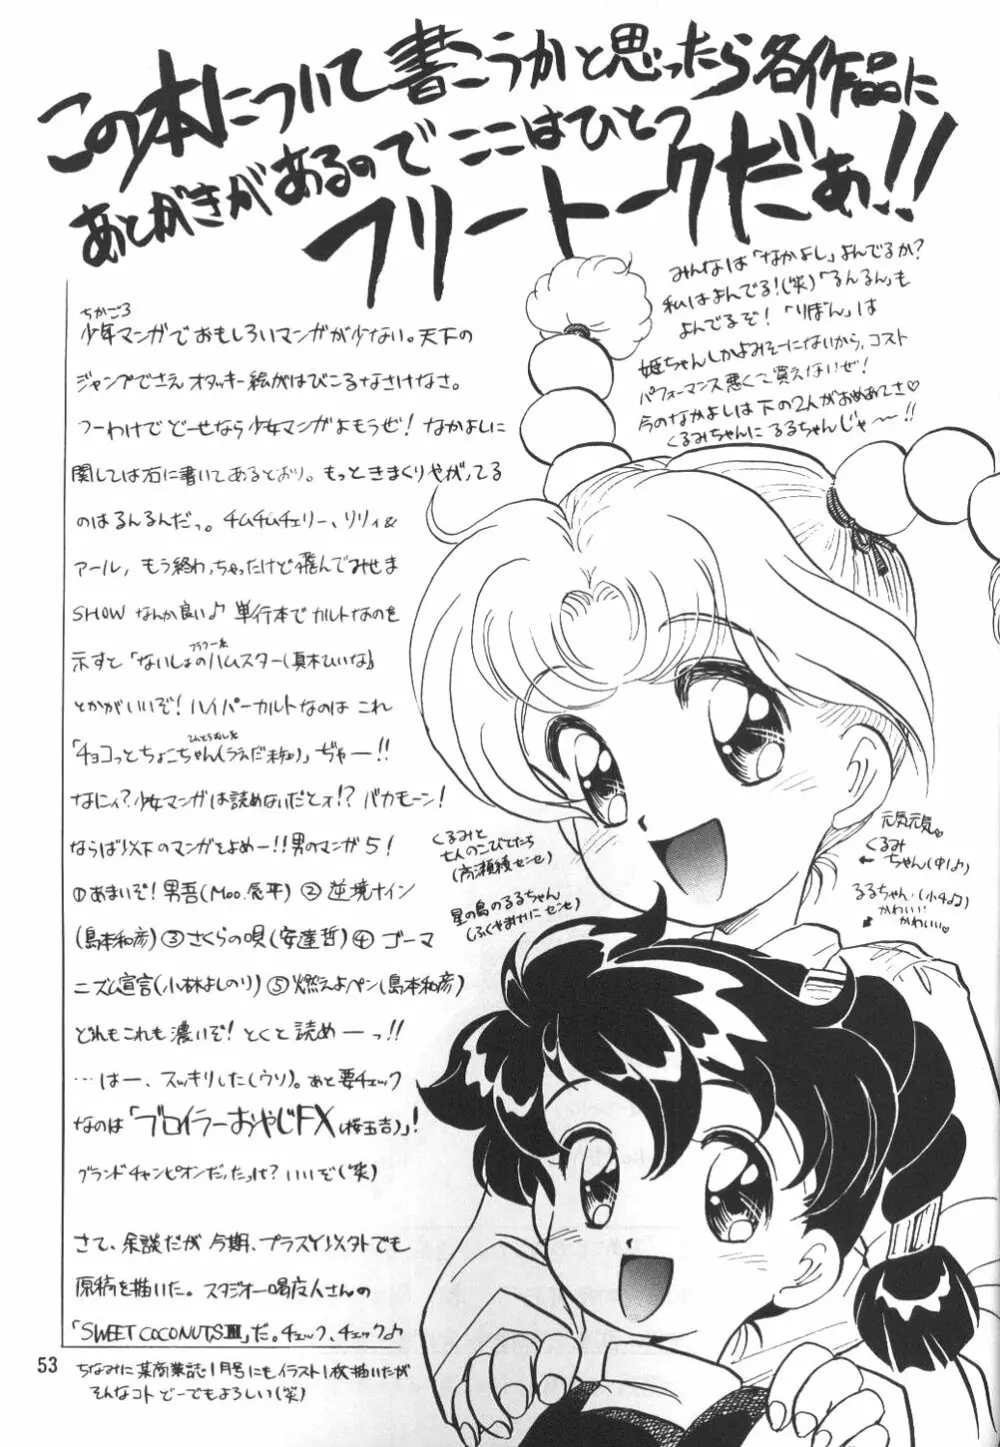 この本について書こうかと思ったら各作品に
あとがきがあるのでここはひとつ
フリートークだぁ!!
みんなは「なかよし」よんでるか?
私はよんでる!(笑)「るんるん」も
よんでるぞ!「りぼん」は
姫ちゃんしかよみそーにないから、コスト
パフォーマンス悪くて買えないぜ!
今のなかよしは下の2人がおめあてさ♡
くるみちゃんにるるちゃんじゃ〜!!
ちかごろ
少年マンガでおもしろいマンガが少ない。天下の
ジャンプでさえオタッキー絵がはびこるなさけなさ。
つーわけでどーせなら少女マンガよもうぜ!なかよしに
関しては右に書いてあるとおり。もっときまくりやがってる
のはるんるんだっ。チムチムチェリー、リリィ&
アール,もう終わっちゃったけど飛んでみせま
SHOWなんか良い♪単行本でカルトなのを
示すと「ないしょのハムスター(真木ひいな)」
とかがいいぞ!ハイパーカルトなのはこれ
「チョコっとちょこちゃん(うえだ未知)」ぢゃー!!
なにィ?少女マンガは読めないだとォ!?バカモーン!
ならば以下のマンガをよめー!!男のマンガ5!
①あまいぞ!男吾(Moo.念平)②逆境ナイン
(島本和彦)③さくらの唄(安達哲)④ゴーマ
ニズム宣言(小林よしのり)⑤燃えよペン(島本和彦)
どれもこれも濃いぞ!とくと読めーっ!!
…はー、スッキリした(ウソ)。あと要チェック
なのは「ブロイラーおやじFX(桜玉吉)」!
グランドチャンピオンだったっけ?いいぞ(笑)
さて、余談だが今期、プラスY以外でも
原稿を描いた。スタジオ一喝度人さんの
「SWEET COCONUTSⅢ」だ。チェック、チェック♪
ちなみに某商業誌1月号にもイラスト1枚描いたが
そんなコトどーでもよろしい(笑)
くるみと
七人のこびとたち
(高瀬綾センセ)
星の島のるるちゃん
(ふくやまけいこセンセ)
元気元気♡
くるみ
ちゃん(中1♪)
るるちゃん(小4♪)
かわいい
かわいい♡
53